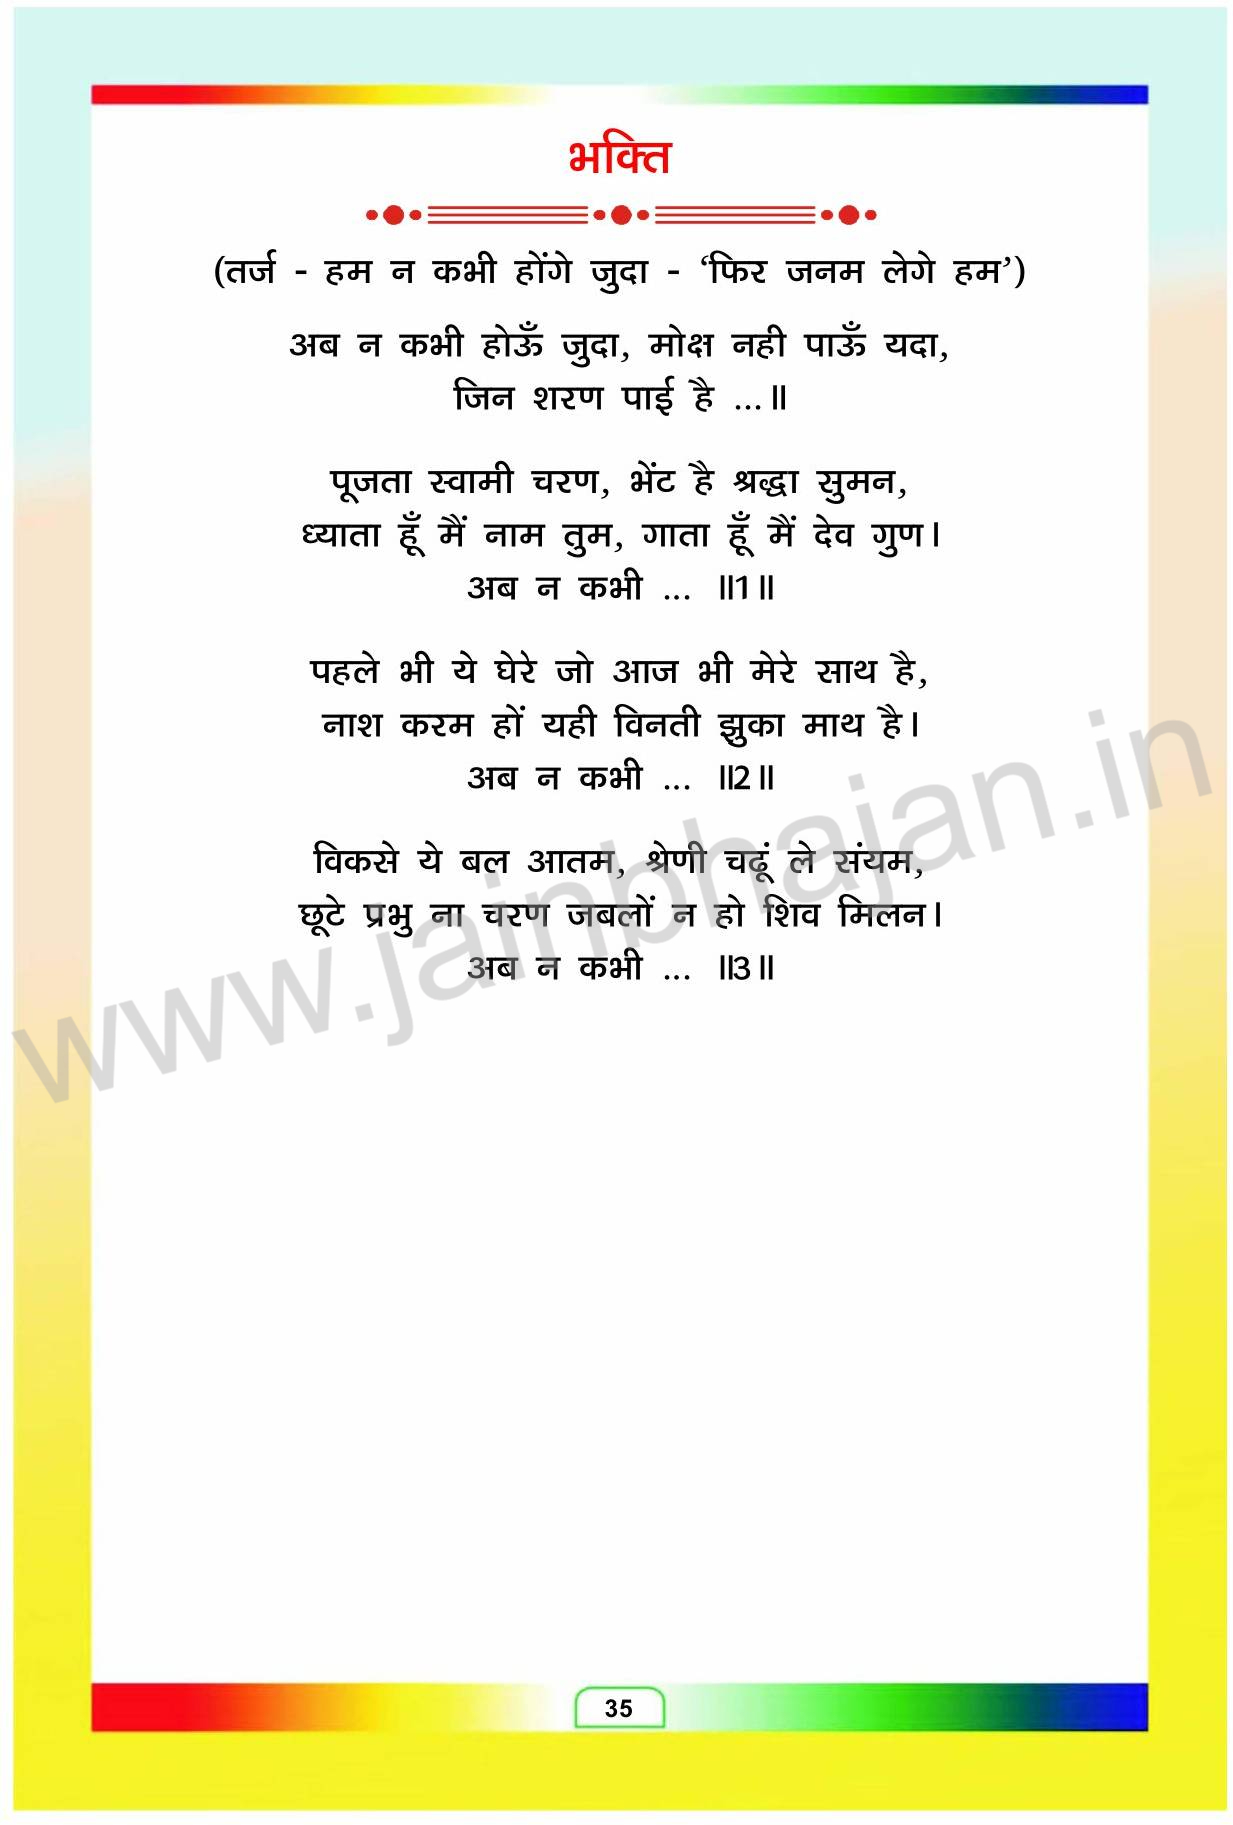 भक्ति
(तर्ज - हम न कभी होंगे जुदा - ‘फिर जनम लेगे हम’)
अब न कभी होऊँ जुदा, मोक्ष नही पाऊँ यदा,
जिन शरण पाई है ...॥
पूजता स्वामी चरण, भेंट है श्रद्धा सुमन,
ध्याता हूँ मैं नाम तुम, गाता हूँ मैं देव गुण।
अब न कभी ... ॥1॥
पहले भी ये घेरे जो आज भी मेरे साथ है,
नाश करम हों यही विनती झुका माथ है।
अब न कभी ... ॥2॥
विकसे ये बल आतम, श्रेणी चढूं ले संयम,
छूटे प्रभु ना चरण जबलों न हो शिव मिलन।
अब न कभी ... ॥3॥
www.jainbhajan.in
35